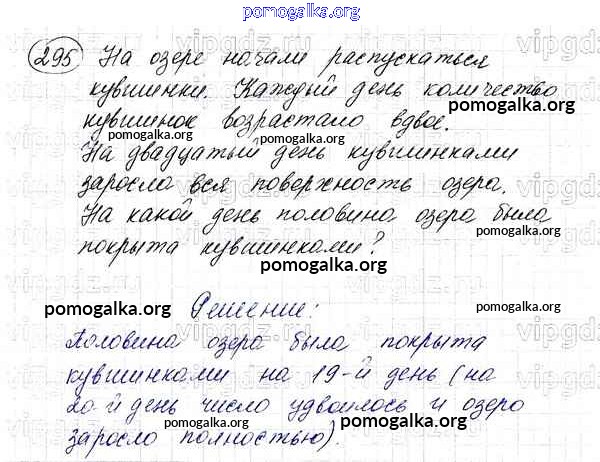 pomogalka.org
295 На озере начали распускаться
кувшинки. Каждый день количество
кувшинок возрастало вдвое.
На двадцатый день кувшинками
заросла вся поверхность озера.
На какой день половина озера была
покрыта кувшинками?
Решение:
Половина озера была покрыта
кувшинками на 19-й день (на
20-й день число удвоилось и озеро
заросло полностью).
pomogalka.org
pomogalka.org
pomogalka.org
pomogalka.org
pomogalka.org
pomogalka.org
pomogalka.org
pomogalka.org
pomogalka.org
pomogalka.org